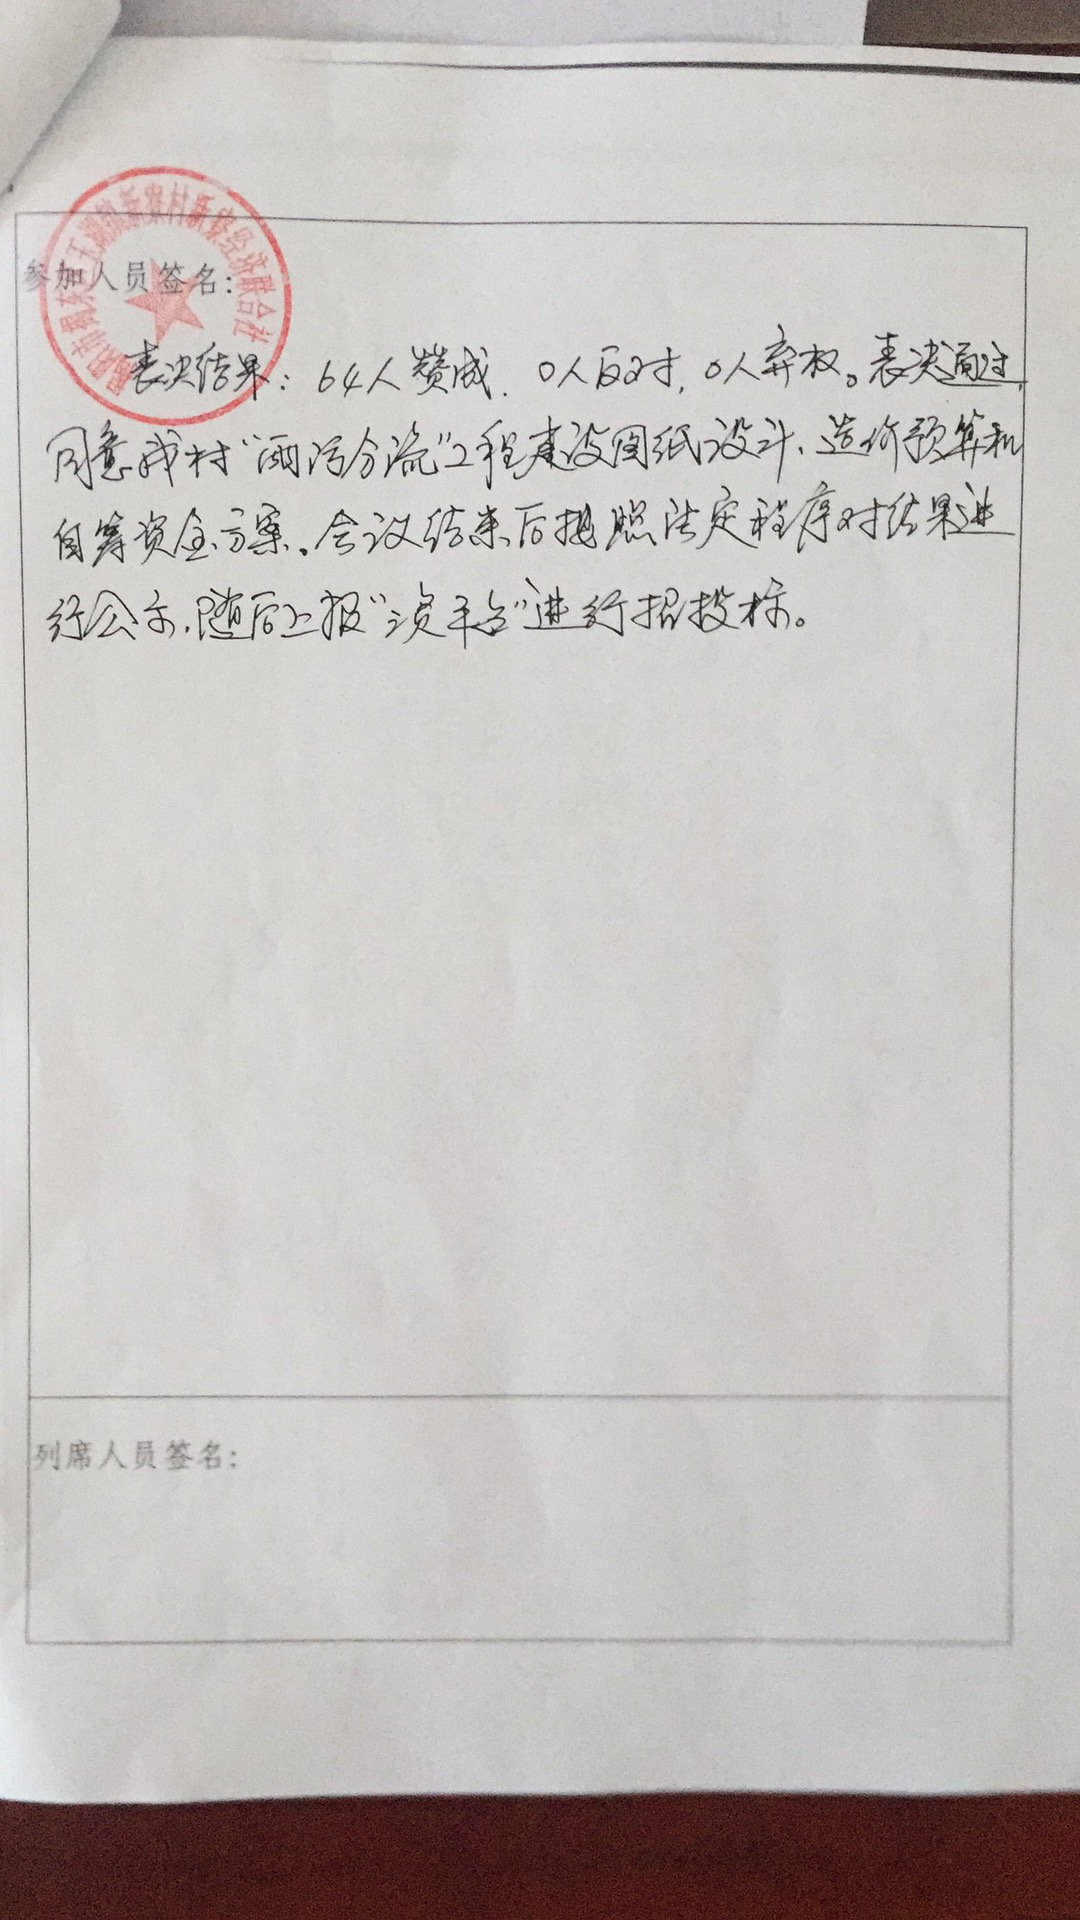 参加人员签名：
表决结果：64人赞成．0人反对，0人弃权。表决通过，
同意我村“雨污分流”工程建设图纸设计、造价预算和
自筹资金方案。会议结束后按照法定程序对结果进
行公示，随后上报“三资平台”进行招投标。
列席人员签名：